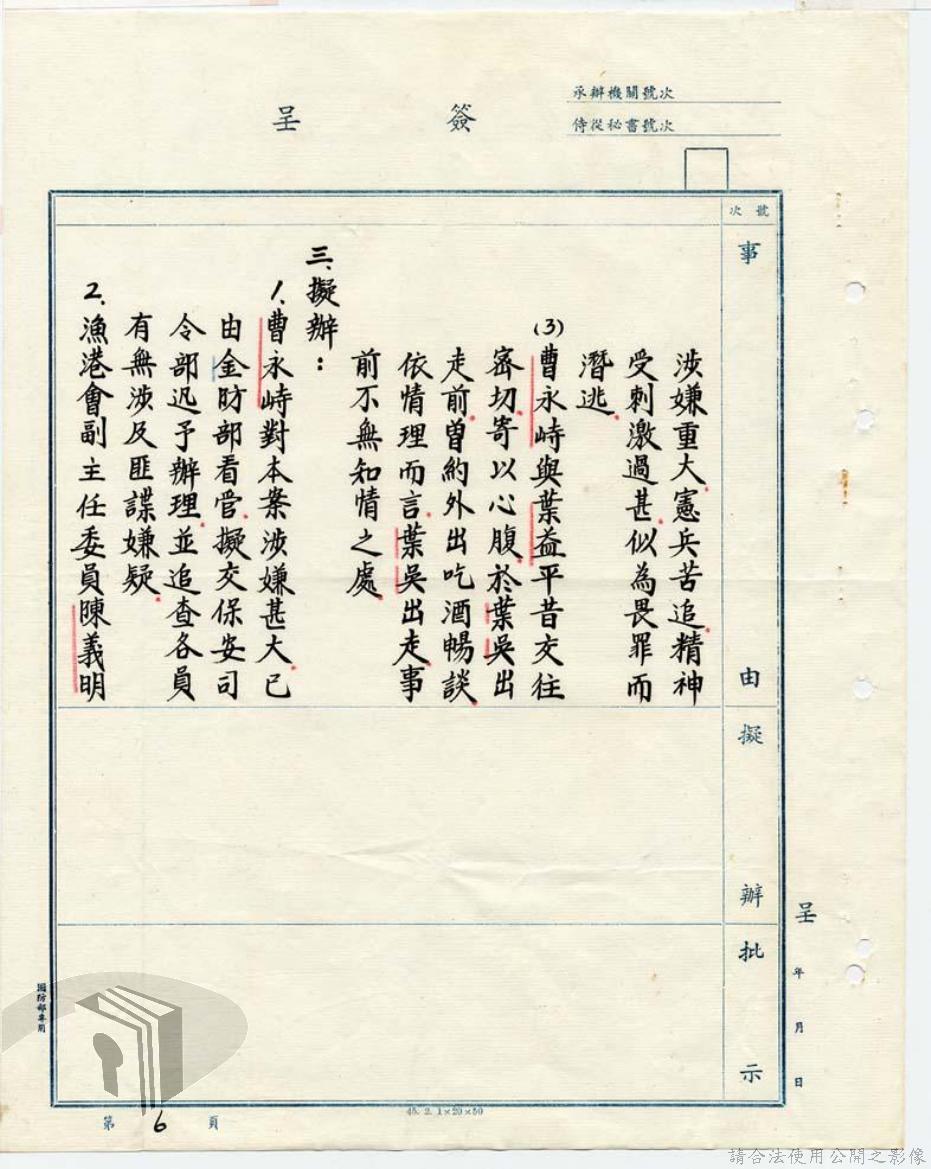 承辦機關號次
侍從秘書號次
簽呈
號次
事由
擬辦
批示
涉嫌重大,憲兵苦追,精神
受刺激過甚,似為畏罪而
潛逃.
(3)曹永峙與葉益平昔交往
密切,寄以心腹,於葉吳出
走前,曾約外出吃酒暢談,
依情理而言,葉吳出走,事
前不無知情之處.
三、擬辦:
1、曹永峙對本案涉嫌甚大,已
由金防部看管,擬交保安司
令部迅予辦理,並追查各員
有無涉及匪諜嫌疑.
2、漁港會副主任委員陳義明
呈 年 月 日
國防部專用
第6頁
45. 2. 1×20×50
請合法使用公開之影像